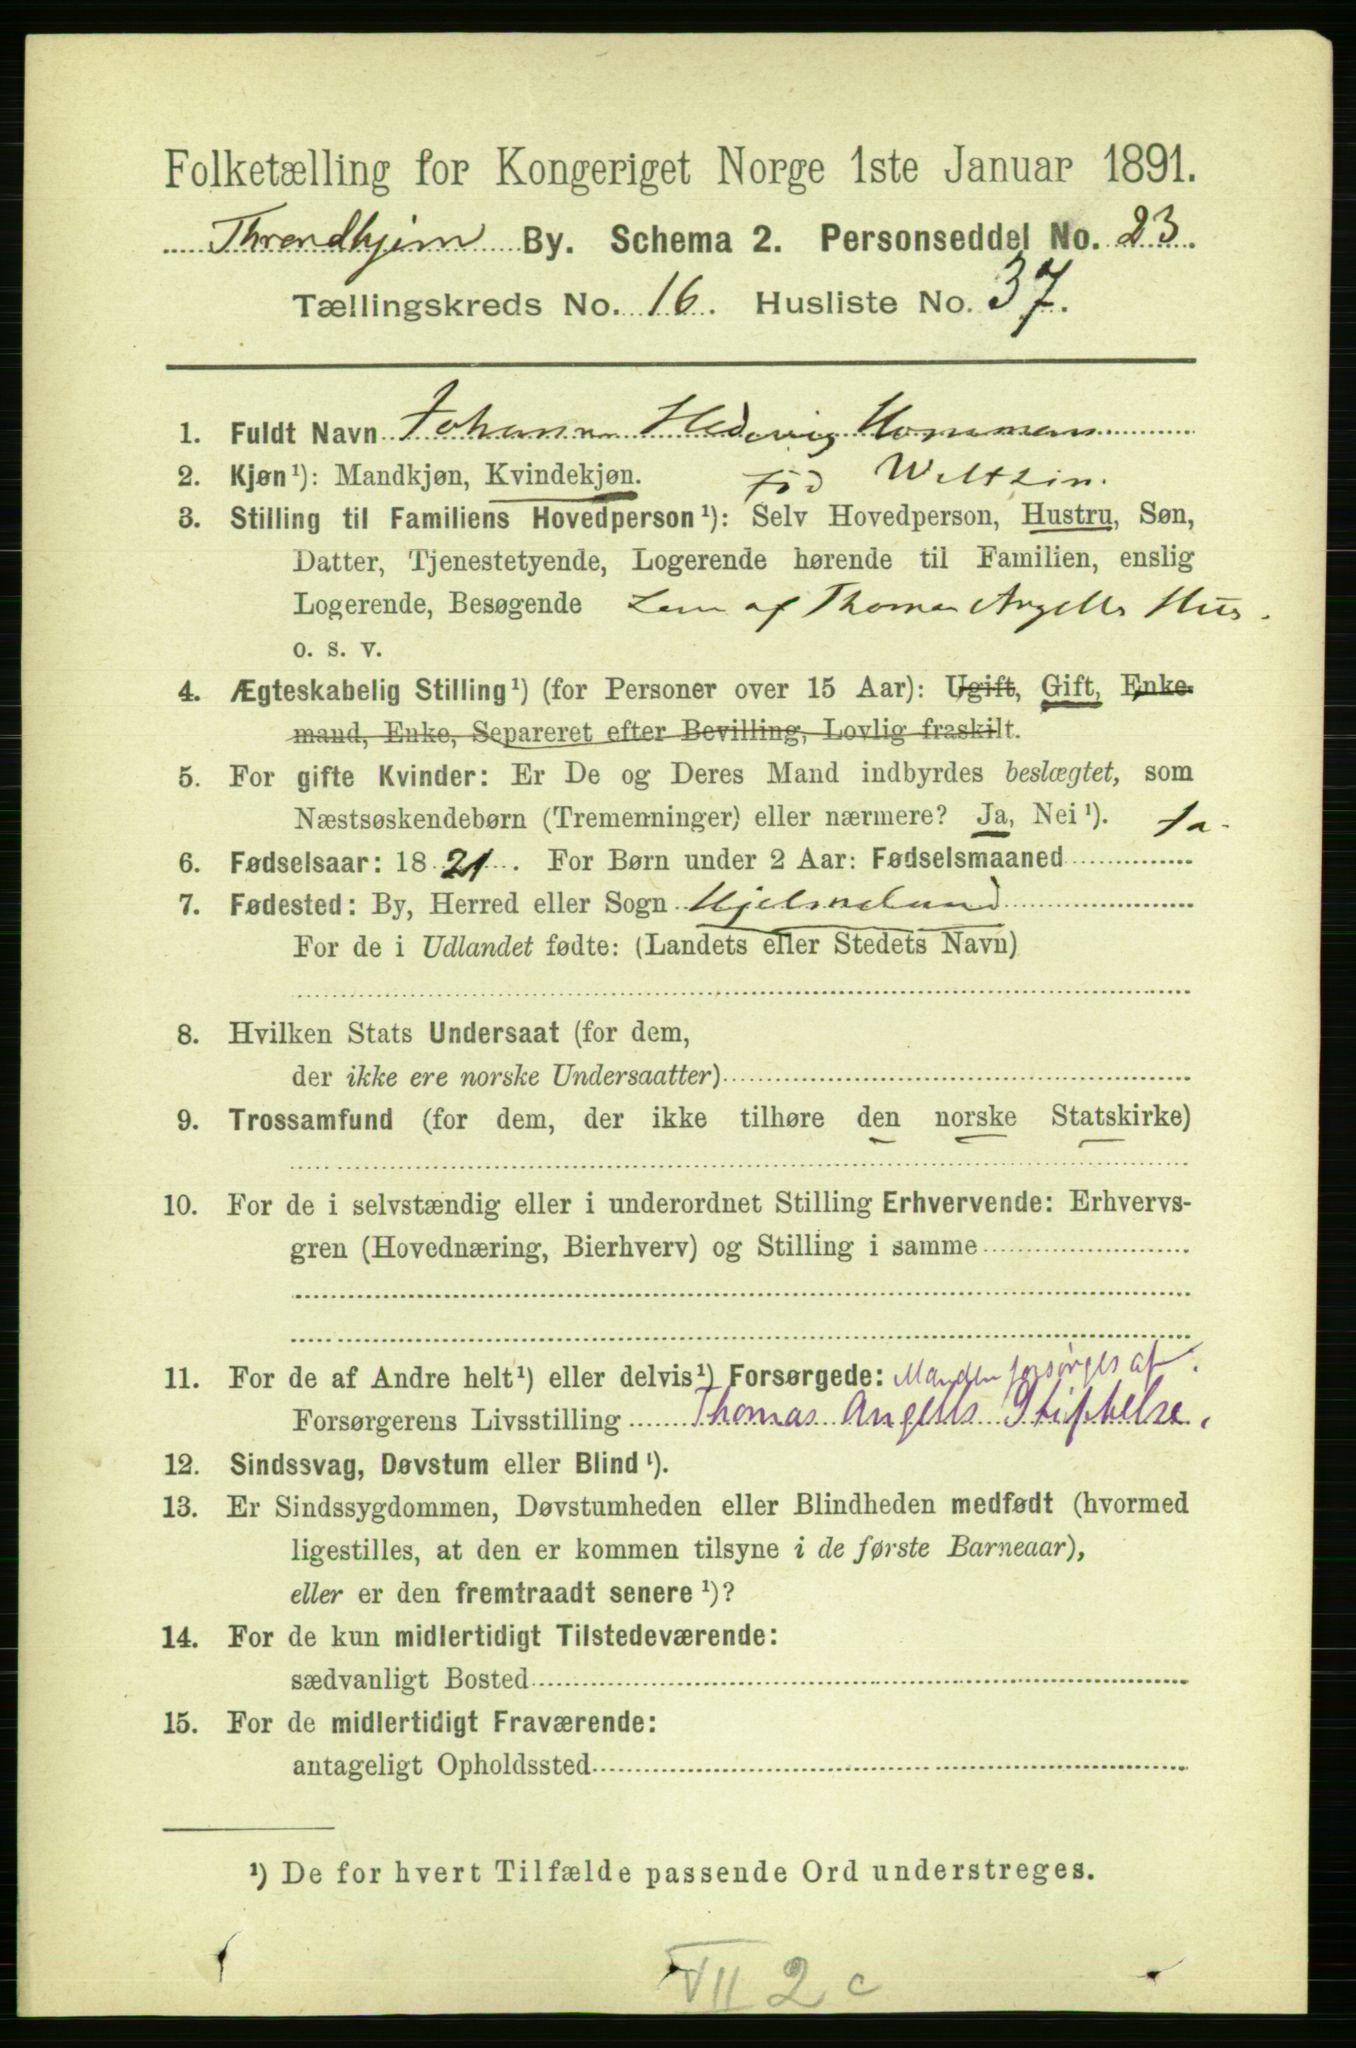 Folketælling for Kongeriget Norge 1ste Januar 1891.
Throndhjem By. Schema 2. Personseddel No. 23.
Tællingskreds No. 16. Husliste No. 37.
1. Fuldt Navn Johanna Hedevig Hommen
2. Kjøn¹): Mandkjøn, Kvindekjøn. fød Weltzin.
3. Stilling til Familiens Hovedperson¹): Selv Hovedperson, Hustru, Søn,
Datter, Tjenestetyende, Logerende hørende til Familien, enslig
Logerende, Besøgende Lem af Thomas Angells Hus.
o. s. v.
4. Ægteskabelig Stilling¹) (for Personer over 15 Aar): Ugift, Gift, Enke-
mand, Enke, Separeret efter Bevilling, Lovlig fraskilt.
5. For gifte Kvinder: Er De og Deres Mand indbyrdes beslægtet, som
Næstsøskendebørn (Tremenninger) eller nærmere? Ja, Nei¹). Ja.
6. Fødselsaar: 1821. For Børn under 2 Aar: Fødselsmaaned
7. Fødested: By, Herred eller Sogn
For de i Udlandet fødte: (Landets eller Stedets Navn)
8. Hvilken Stats Undersaat (for dem,
der ikke ere norske Undersaatter)
9. Trossamfund (for dem, der ikke tilhøre den norske Statskirke)
10. For de i selvstændig eller i underordnet Stilling Erhvervende: Erhvervs-
gren (Hovednæring, Bierhverv) og Stilling i samme
11. For de af Andre helt¹) eller delvis¹) Forsørgede: Manden forsørges af
Forsørgerens Livsstilling Thomas Angells Stiftelse.
12. Sindssvag, Døvstum eller Blind¹).
13. Er Sindssygdommen, Døvstumheden eller Blindheden medfødt (hvormed
ligestilles, at den er kommen tilsyne i de første Barneaar),
eller er den fremtraadt senere¹)?
14. For de kun midlertidigt Tilstedeværende:
sædvanligt Bosted
15. For de midlertidigt Fraværende:
antageligt Opholdssted
¹) De for hvert Tilfælde passende Ord understreges.
VII 2 c